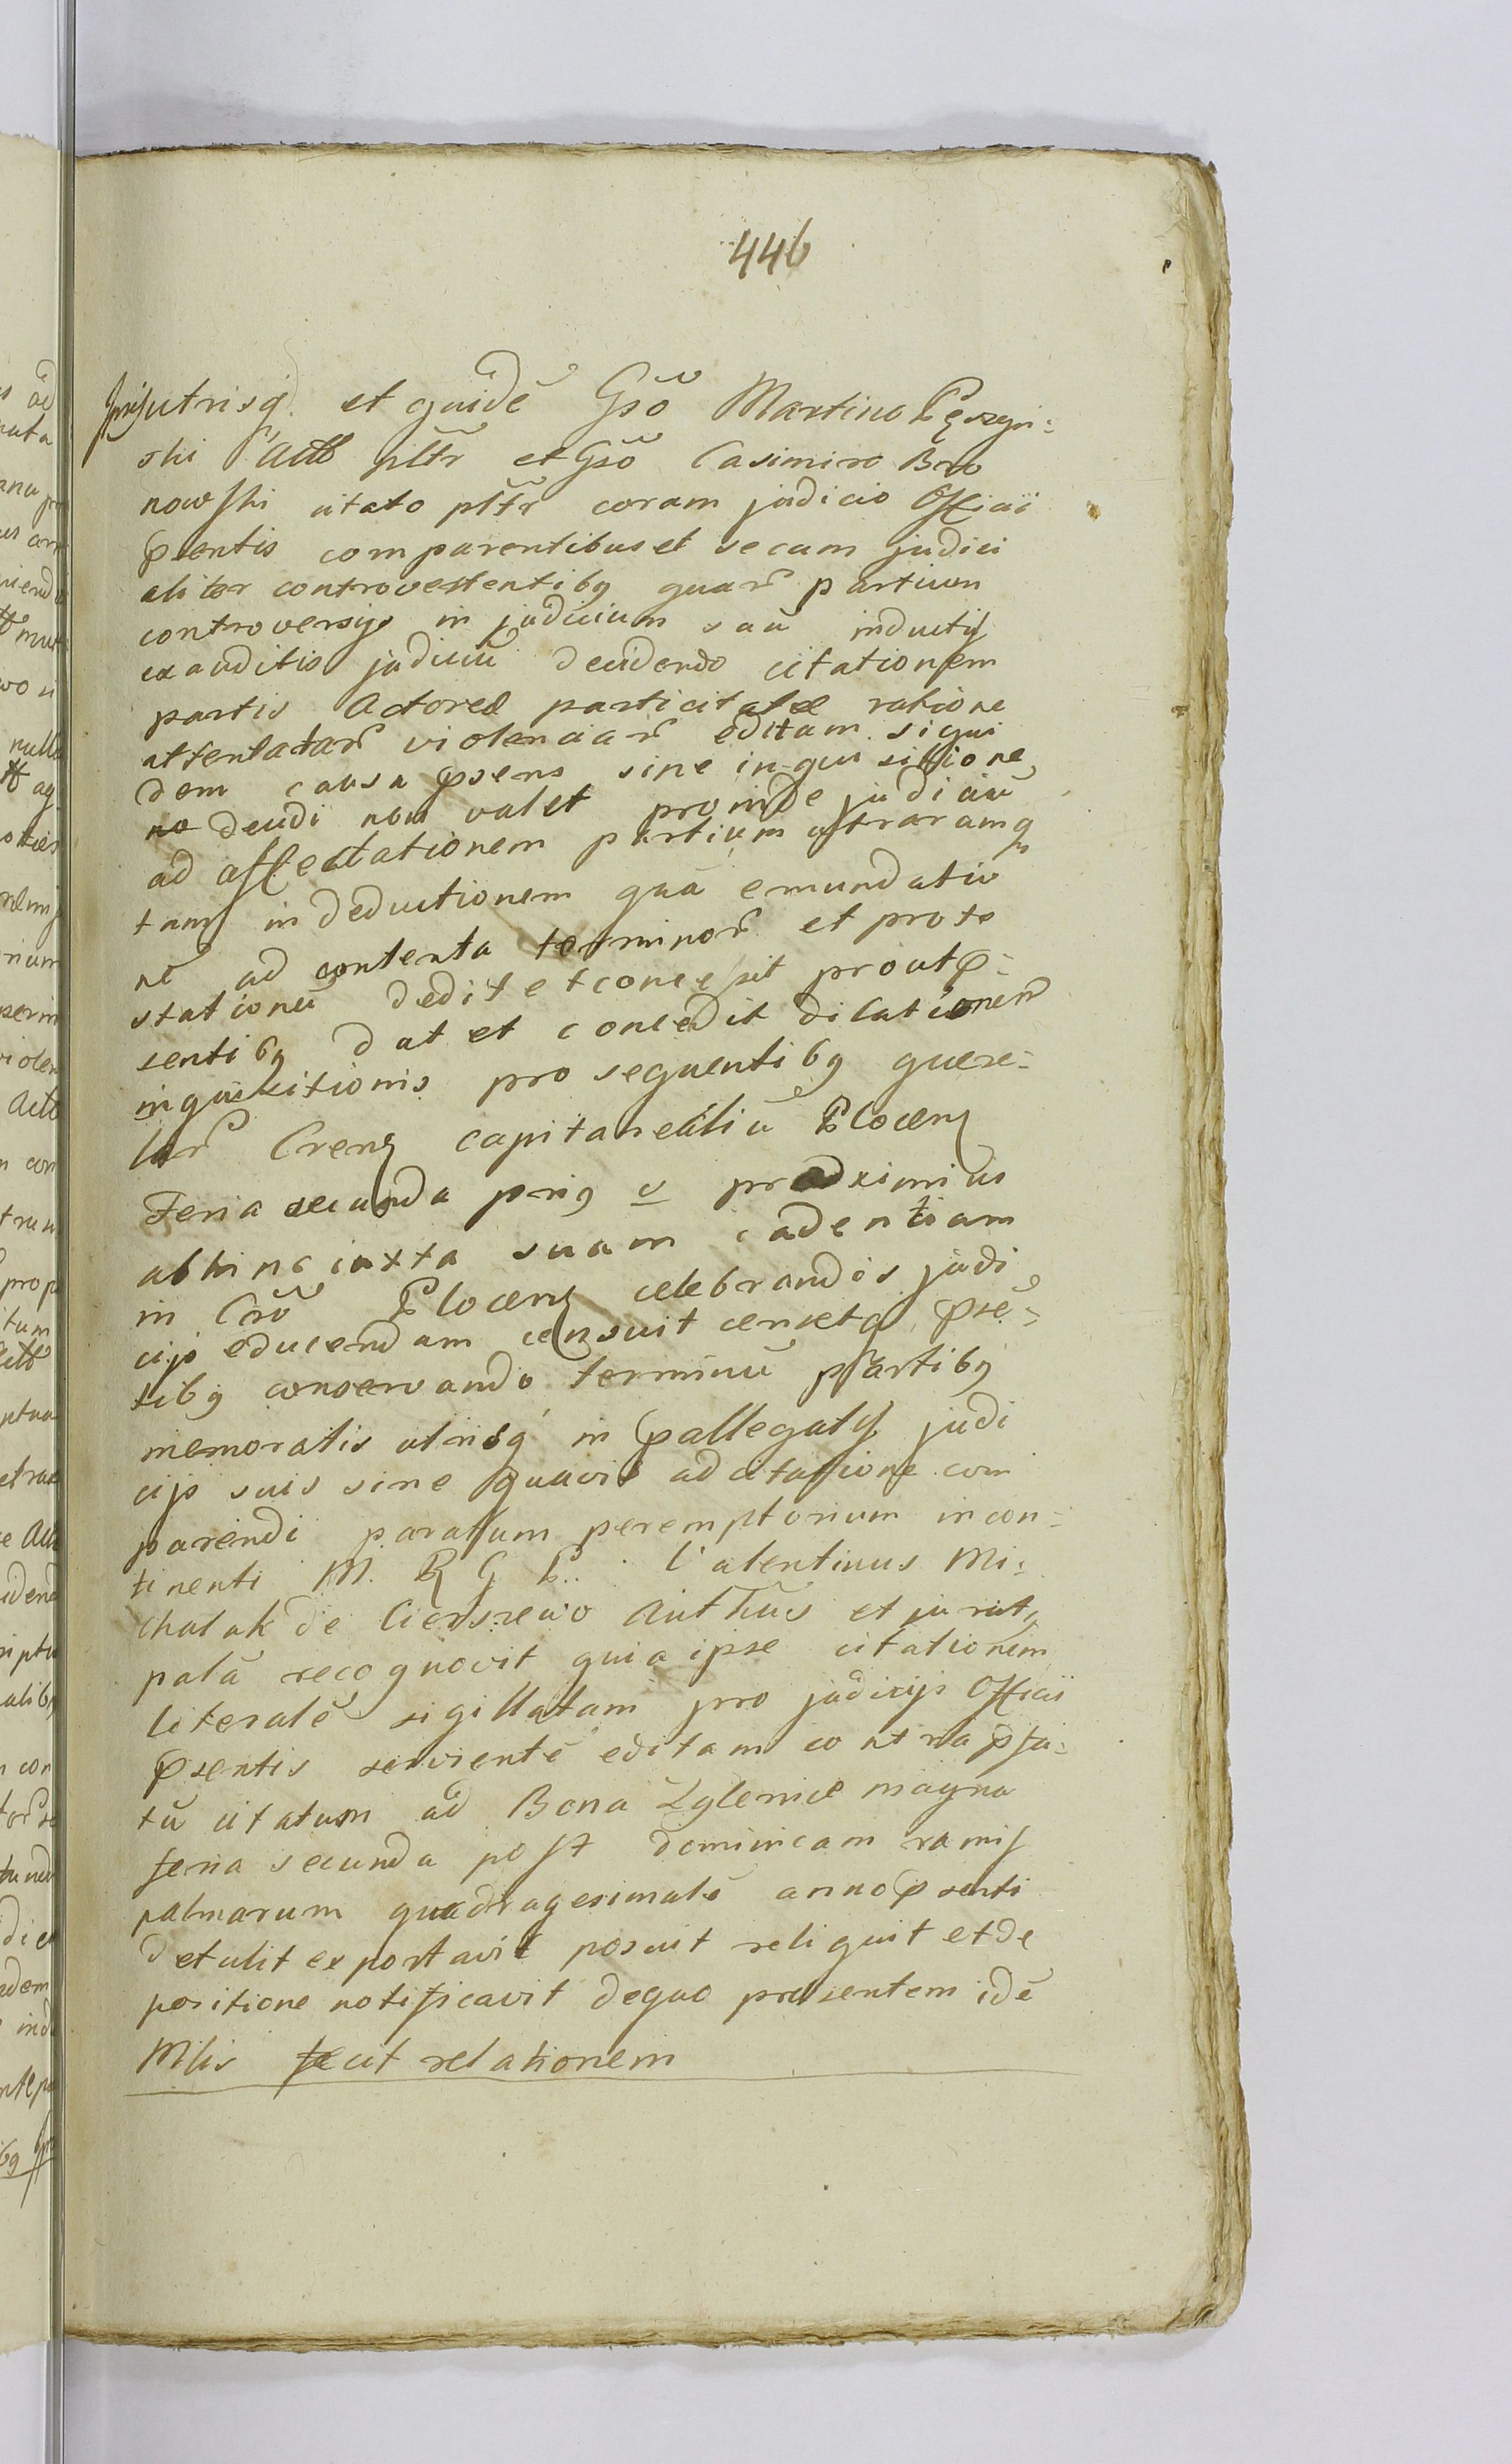 446
utrisq et quidē Gsō Martino Pęszyn=
ski Actō psltr et Gsō Casimiro Bro
nowski citato psltr coram judicio Officii
pṡentis comparentibus et secum judici
aliter controvertentibq quarū partium
controversijs in judicium suū inductis
exauditis judiciū decidendo citationem
partis Actoreæ parti citatæ ratione
attentatarū violenciarū editam siqui
dem causa pṡens sine inquisitione
decidi non valet proinde judiciū
ad affectationem partium utrarumq
tam in deductionem quā emundatio
nē ad contenta terminorū et prote
stationū dedit et concessit prout p̄=
sentibq dat et concedit dilationem
inquisitionis pro sequentibq quere=
larū Crens capitanealiū Plocens
Feria secunda p proximius
abhinc iuxta suam cadentiam
in Crō Plocens celebrandis judi
cijs educendam censuit censetq p̄sē=
tibq conservando terminū partibq
memoratis utrisq in p̄allegatis judi
cijs suis sine quavis adcitatione com
parendi paratum peremptorium in con=
tinenti M. R G P. Valentinus Mi=
chalak de Cierszewo Authūs et jurat
palā recognovit quia ipse citationem
literalē sigillatam pro judicijs Officii
p̄sentis serviente editam contra
tū citatum ad Bona Zglenice magna
feria secunda post dominicam ramis
palmarum quadragesimalē anno p̄senti
detulit exportavit posuit reliquit et de
positione notificavit de quo præsentem idē
Mlis fecit relationem